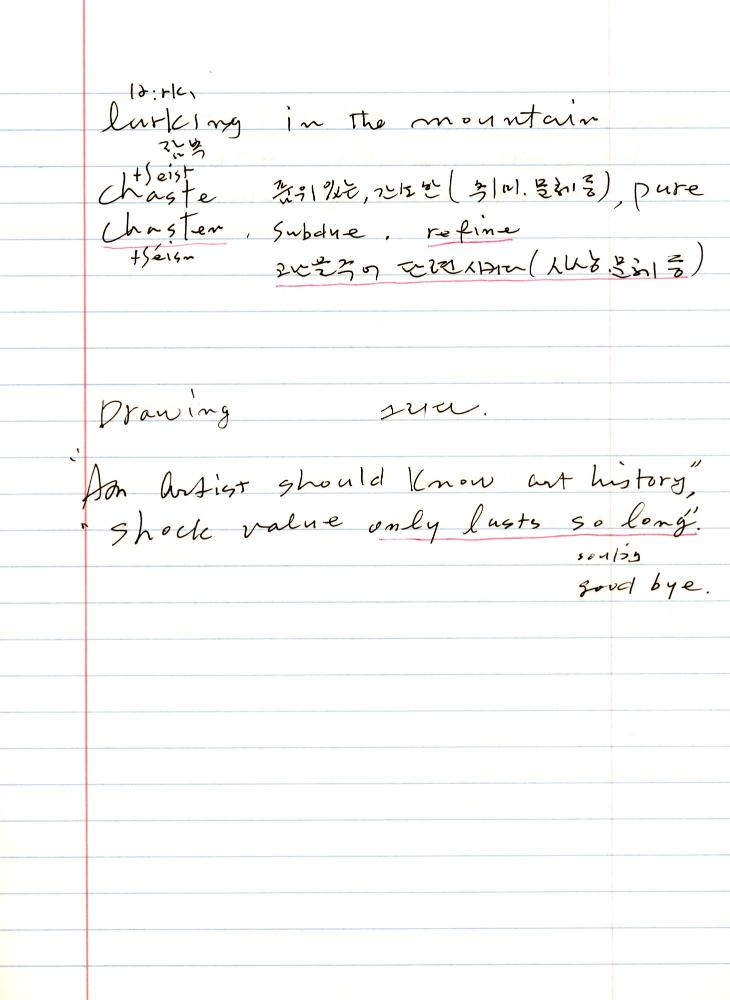 lə:rk,
lurking in the mountain
잠복
tʃeist
chaste 품위있는, 간소한 ( 취미. 문체 등 ), pure
chasten, subdue, refine
tʃéisn
고난을 주어 단련시키다 ( 사상, 문체 등 )
Drawing 그리다.
"An artist should know art history,"
"shock value only lasts so long."
good bye.